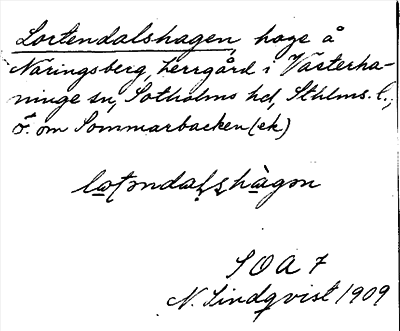 Lortendalshagen, hage å
Näringsberg, herrgård i Västerha-
ninge sn, Sotholms hd, Sthlms. l.,
ö. om Sommarbacken (ek)
SOA 7
N. Lindqvist 1909